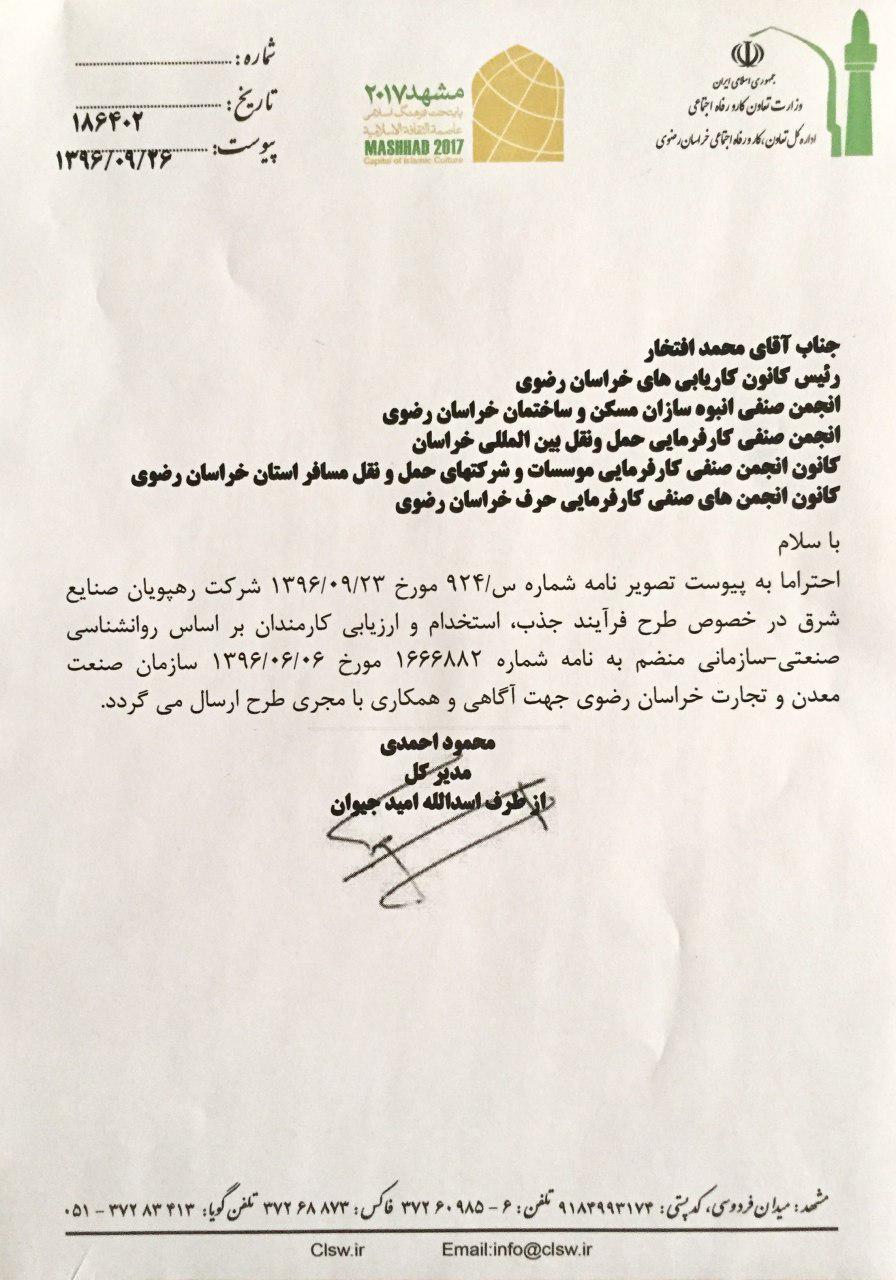 جمهوری اسلامی ایران
وزارت تعاون کار و رفاه اجتماعی
اداره کل تعاون، کار و رفاه اجتماعی خراسان رضوی
مشهد ۲۰۱۷
پایتخت فرهنگ اسلامی
عاصمة الثقافة الاسلامية
MASHHAD 2017
Capital of Islamic Culture
شماره :
تاریخ :
۱۸۶۴۰۲
پیوست:
۱۳۹۶/۰۹/۲۶
جناب آقای محمد افتخار
رئیس کانون کاریابی های خراسان رضوی
انجمن صنفی انبوه سازان مسکن و ساختمان خراسان رضوی
انجمن صنفی کارفرمایی حمل ونقل بین المللی خراسان
کانون انجمن صنفی کارفرمایی موسسات و شرکتهای حمل و نقل مسافر استان خراسان رضوی
کانون انجمن های صنفی کارفرمایی حرف خراسان رضوی
با سلام
احتراما به پیوست تصویر نامه شماره س/۹۲۴ مورخ ۱۳۹۶/۰۹/۲۳ شرکت رهپویان صنایع
شرق در خصوص طرح فرآیند جذب، استخدام و ارزیابی کارمندان بر اساس روانشناسی
صنعتی-سازمانی منضم به نامه شماره ۱۶۶۶۸۸۲ مورخ ۱۳۹۶/۰۶/۰۶ سازمان صنعت
معدن و تجارت خراسان رضوی جهت آگاهی و همکاری با مجری طرح ارسال می گردد.
محمود احمدی
مدیر کل
از طرف اسدالله امید جیوان
مشهد: میدان فردوسی، کد پستی: ۹۱۸۴۹۹۳۱۷۴ تلفن: ۶ - ۳۷۲۶۰۹۸۵ فاکس: ۳۷۲۶۸۸۷۳ تلفن گویا: ۳۷۲۸۳۴۱۳ - ۰۵۱
Clsw.ir Email:info@clsw.ir